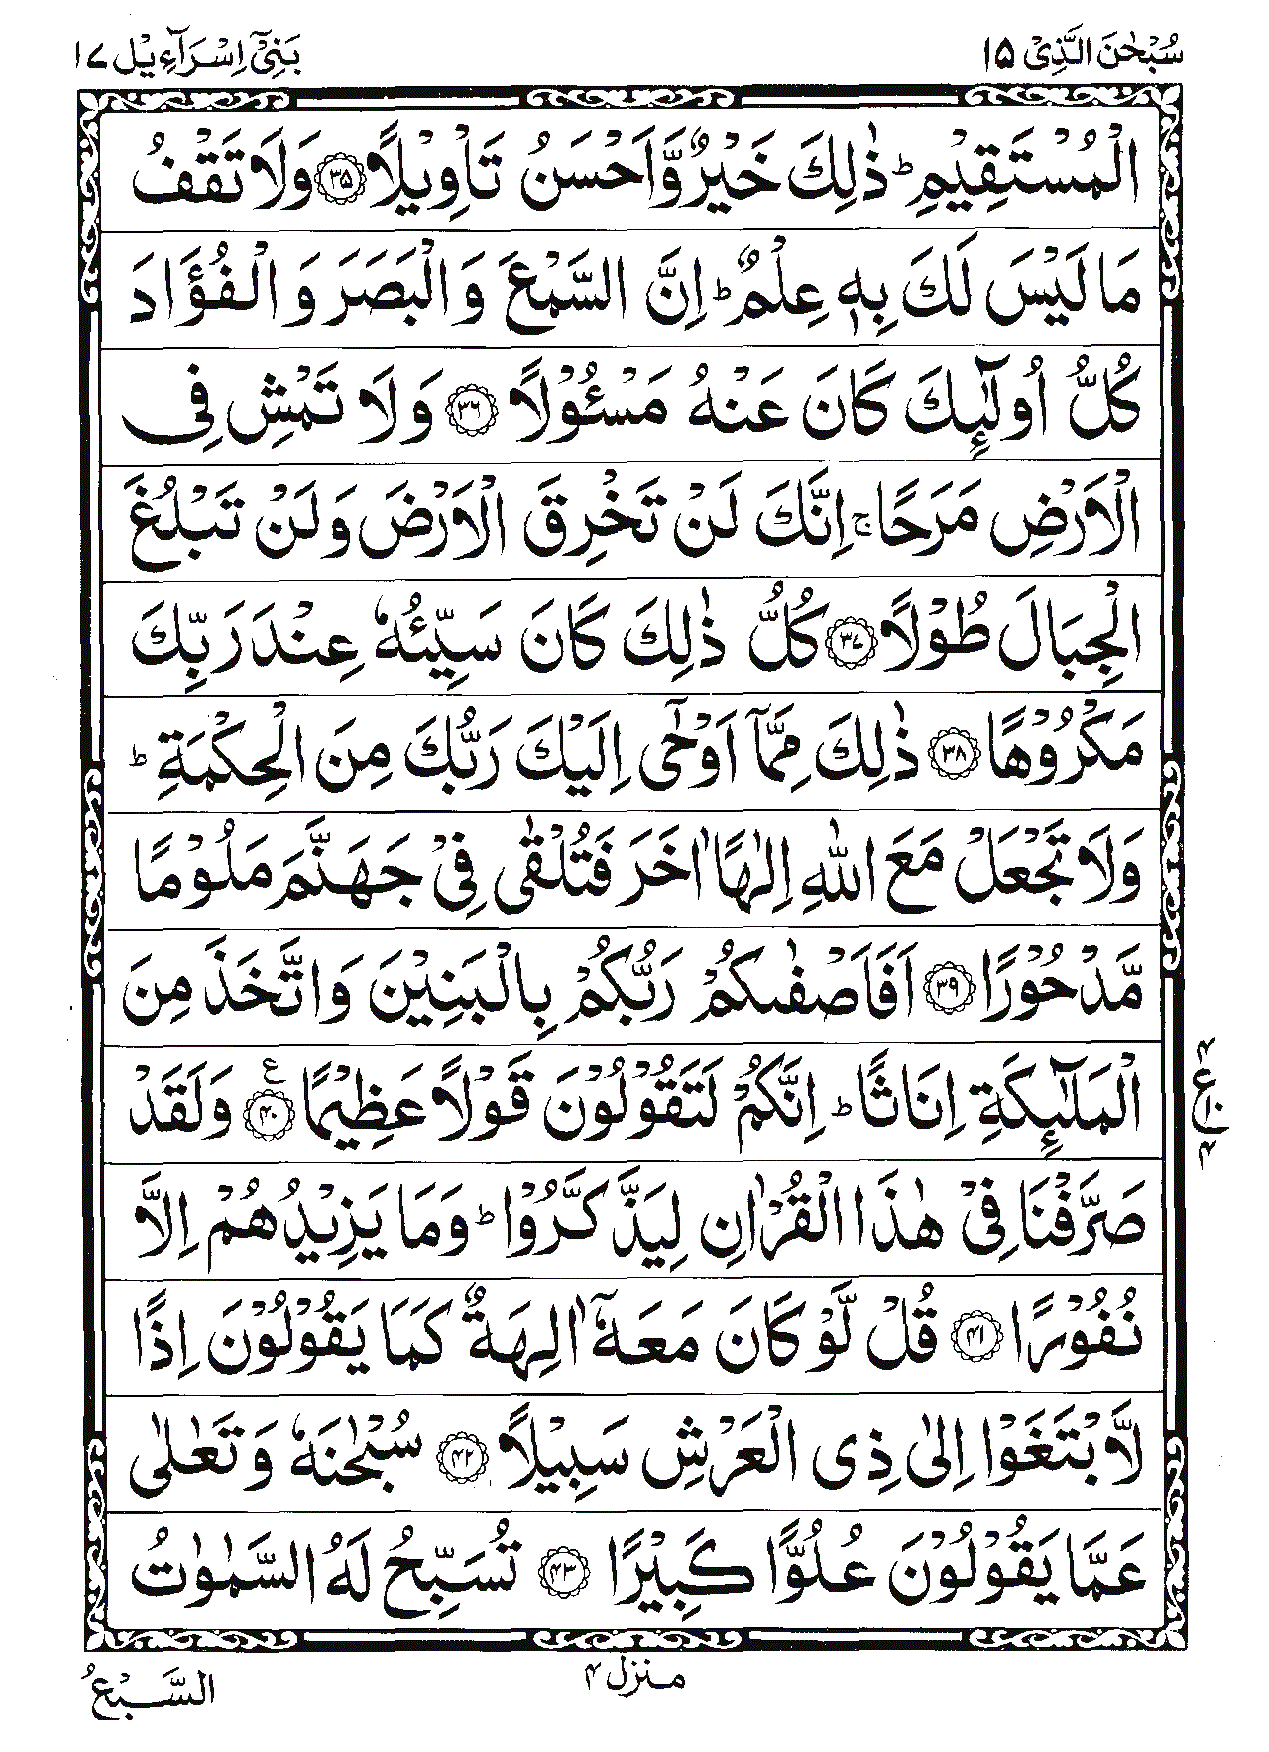 سُبْحٰنَ الَّذِیْ ۱۵
بَنِیْۤ اِسْرَآءِیْل ۱۷
الْمُسْتَقِیْمِ ؕ ذٰلِكَ خَیْرٌ وَّاَحْسَنُ تَاْوِیْلًا ۳۵ وَلَا تَقْفُ
مَا لَیْسَ لَكَ بِهٖ عِلْمٌ ؕ اِنَّ السَّمْعَ وَالْبَصَرَ وَالْفُؤَادَ
كُلُّ اُولٰٓىِٕكَ كَانَ عَنْهُ مَسْـُٔوْلًا ۳۶ وَلَا تَمْشِ فِی
الْاَرْضِ مَرَحًا ۚ اِنَّكَ لَنْ تَخْرِقَ الْاَرْضَ وَلَنْ تَبْلُغَ
الْجِبَالَ طُوْلًا ۳۷ كُلُّ ذٰلِكَ كَانَ سَیِّئُهٗ عِنْدَ رَبِّكَ
مَكْرُوْهًا ۳۸ ذٰلِكَ مِمَّاۤ اَوْحٰۤی اِلَیْكَ رَبُّكَ مِنَ الْحِكْمَةِ ؕ
وَلَا تَجْعَلْ مَعَ اللّٰهِ اِلٰهًا اٰخَرَ فَتُلْقٰی فِیْ جَهَنَّمَ مَلُوْمًا
مَّدْحُوْرًا ۳۹ اَفَاَصْفٰىكُمْ رَبُّكُمْ بِالْبَنِیْنَ وَاتَّخَذَ مِنَ
الْمَلٰٓىِٕكَةِ اِنَاثًا ؕ اِنَّكُمْ لَتَقُوْلُوْنَ قَوْلًا عَظِیْمًا ۴۰ ع وَلَقَدْ
صَرَّفْنَا فِیْ هٰذَا الْقُرْاٰنِ لِیَذَّكَّرُوْا ؕ وَمَا یَزِیْدُهُمْ اِلَّا
نُفُوْرًا ۴۱ قُلْ لَّوْ كَانَ مَعَهٗۤ اٰلِهَةٌ كَمَا یَقُوْلُوْنَ اِذًا
لَّابْتَغَوْا اِلٰی ذِی الْعَرْشِ سَبِیْلًا ۴۲ سُبْحٰنَهٗ وَتَعٰلٰی
عَمَّا یَقُوْلُوْنَ عُلُوًّا كَبِیْرًا ۴۳ تُسَبِّحُ لَهُ السَّمٰوٰتُ
۴ ع ۱۰ ۴
منزل ۴
السَّبْعُ